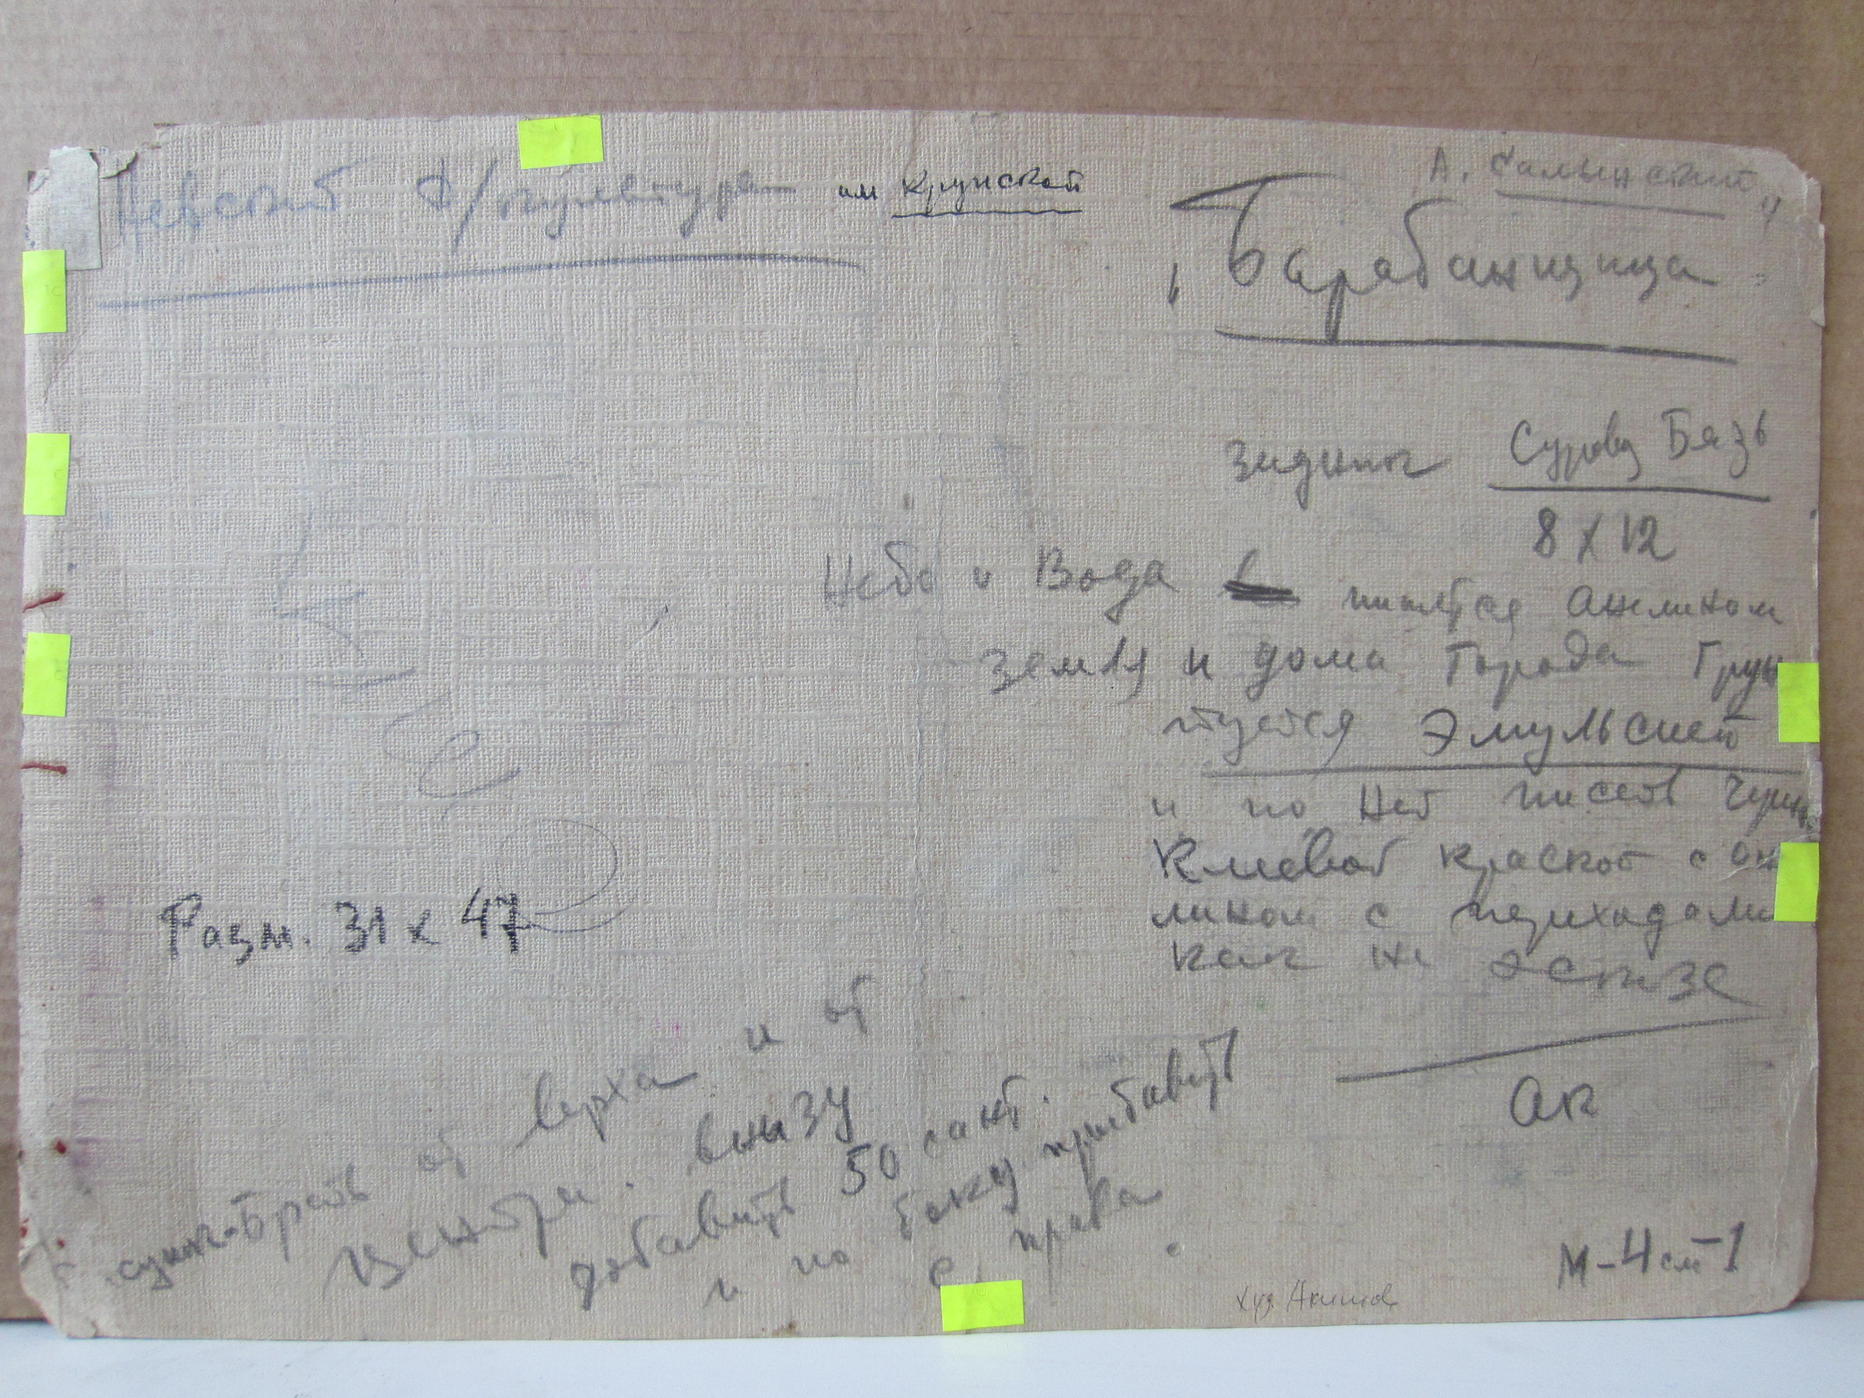 Невский Д/культуры им Крупской
А. Салынский
"Барабанщица"
Задник Суров. Бязь
8 х 12
Небо и Вода пишется анилином
Земля и дома города Грун
туется Эмульсией
и по ней писать
Клеевой краской с ани
лином с переходами
как на эскизе
Ак
Разм. 31 х 47
от верха и от
центра. внизу
добавить 50 сант.
и по боку прибавить
с права
М-4см-1
худ. Акимов